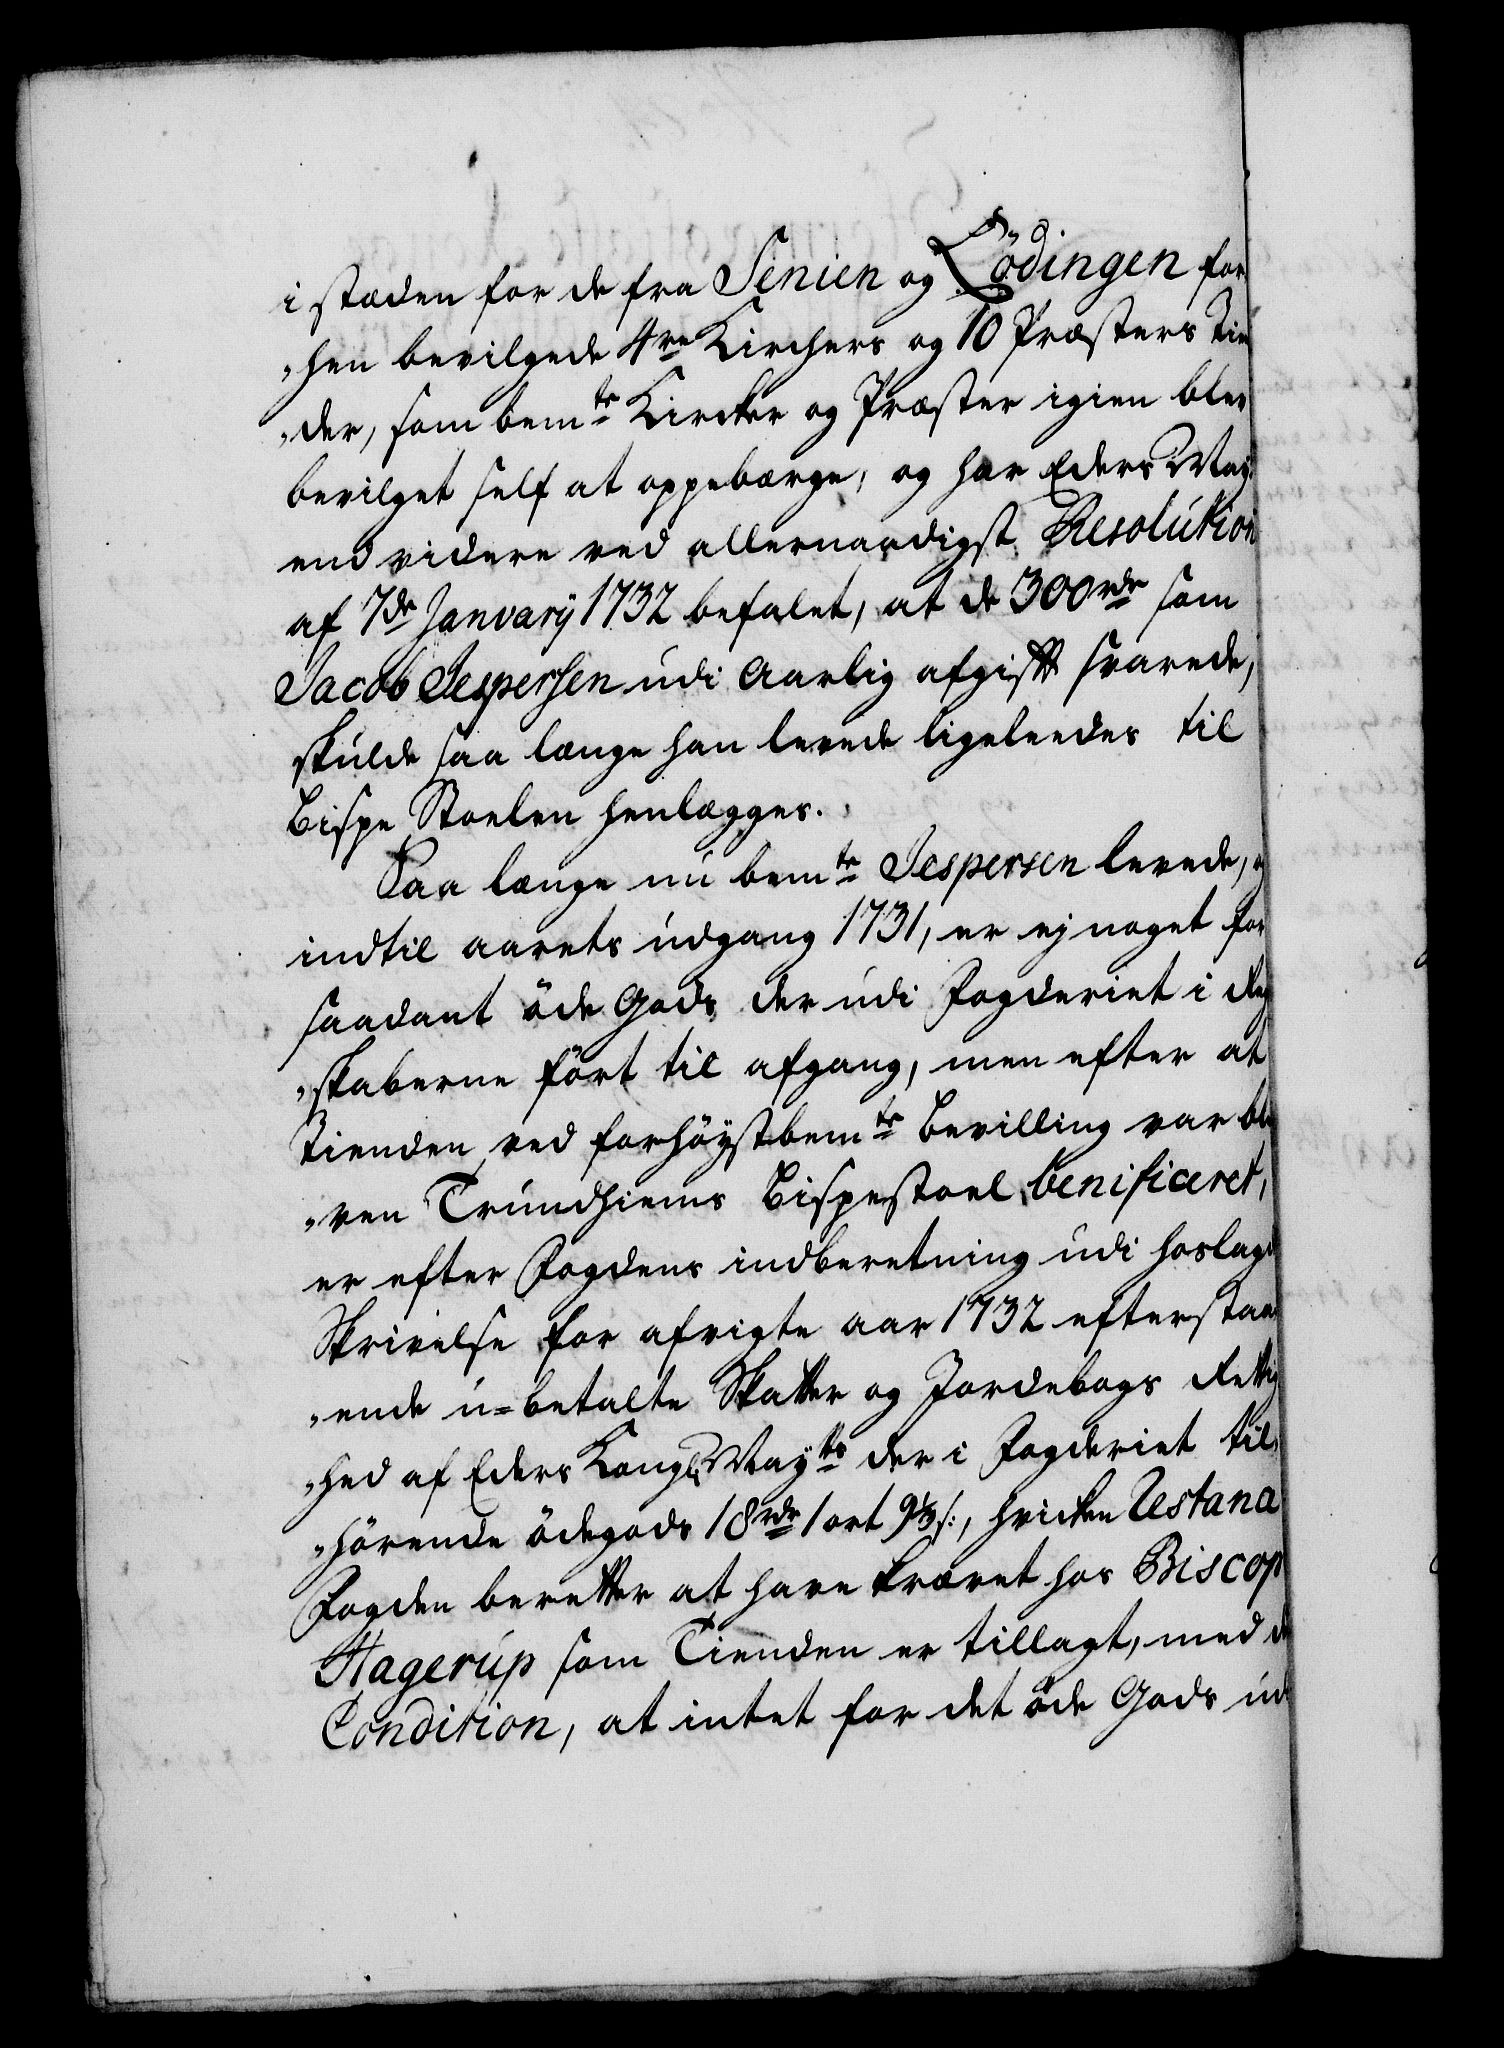 i stæden for de fra Senien og Lödingen for
„hen bevilgede 4re Kirchers og 10 Præsters Tie
„der, som bemte Kircker og Præster igien blev
bevilget self at oppebærge, og har Eders May
end videre ved allernaadigst Resolution
af 7de Janvarÿ 1732 befalet, at de 300rdr som
Jacob Jespersen udi Aarlig afgift svarede,
skulde saa længe han levede ligeleedes til
Bispe Stoelen henlægges.
Saa længe nu bemte Jespersen levede, og
indtil aarets udgang 1731, er ej noget for
saadant öde Gods der udi Fogderiet i Reg
„skaberne fört til afgang, men efter at
Tienden ved forhöystbemte bevilling var ble
„ven Trundhiems Bispestoel benificeret,
er efter Fogdens indberetning udi hoslagd
Skrivelse for afvigte aar 1732 efterstaa
„ende u=betalte Skatter og Jordebogs Rettig
„hed af Eders Kongl Mayts der i Fogderiet til,
„hörende ödegods 18rdr 1 ort 9⅓ s:, hvicken Restance
Fogden beretter at have kræret hos Biscop
Hagerup som Tienden er tillagt, med d
Condition, at intet for det öde Gods ud